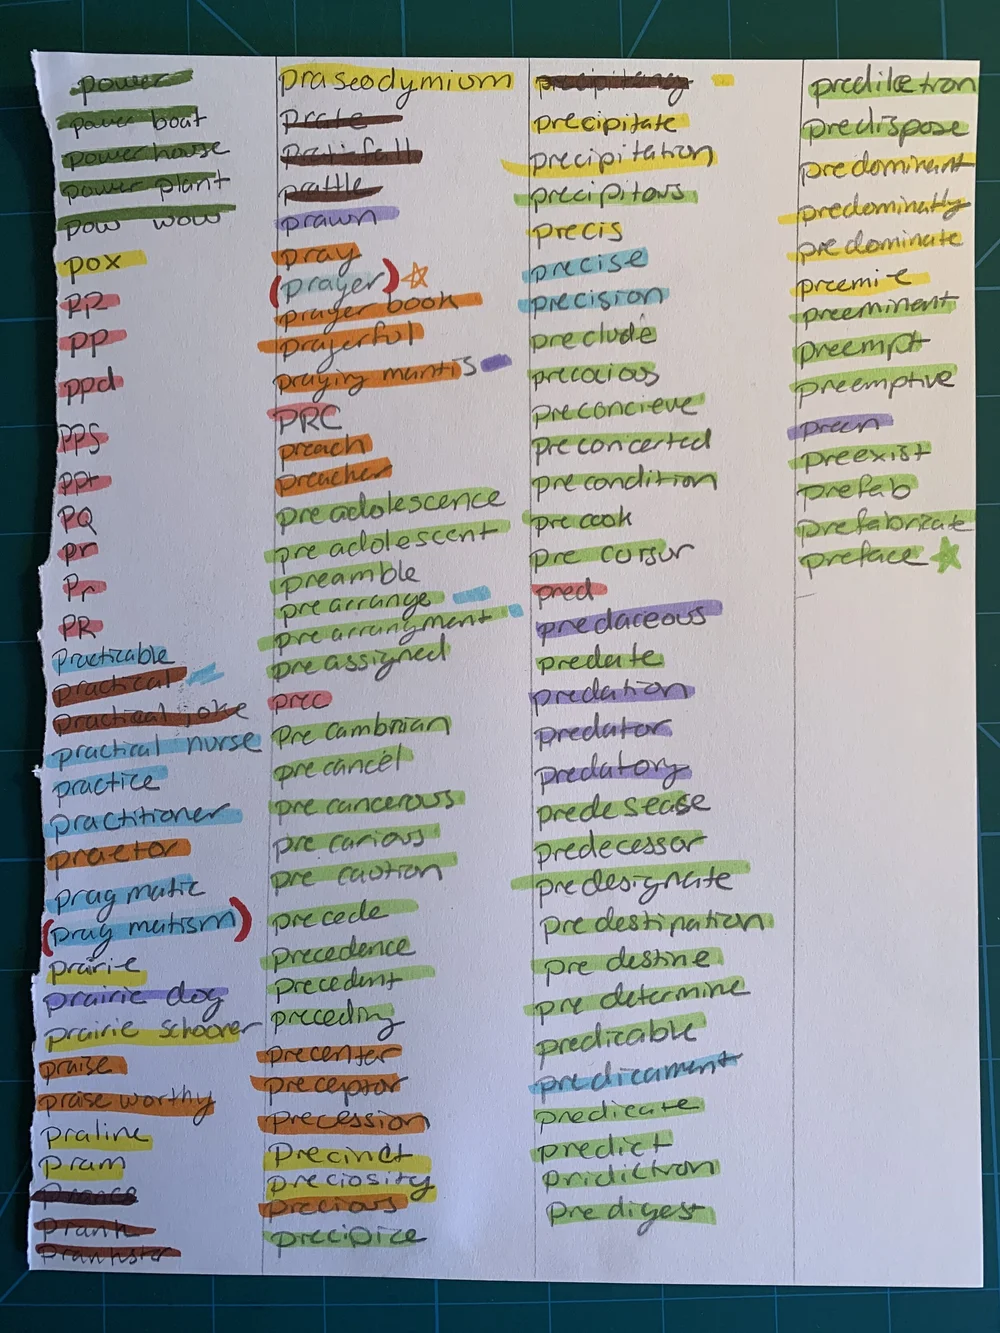 power
power boat
powerhouse
power plant
pow wow
pox
PP
ppd
pps
ppt
PQ
pr
Pr
PR
Practicable
practical
practical joke
practical nurse
practice
practitioner
praetor
pragmatic
(pragmatism)
prairie
prairie dog
prairie schooner
praise
praise worthy
praline
pram
prance
prank
prankster
praseodymium
prate
pratfall
prattle
prawn
pray
(prayer)
prayer book
prayerful
praying mantis
PRC
preach
preacher
pre adolescence
pre adolescent
preamble
pre arrange
pre arrangment
pre assigned
prec
Pre cambrian
precancel
pre cancerous
pre carious
pre caution
precede
precedence
precedent
preceding
precenter
preceptor
precession
precinct
preciosity
precious
precipice
precipitancy
precipitate
precipitation
precipitous
precis
precise
precision
preclude
precocious
preconcieve
pre concerted
pre condition
pre cook
pre cursor
pred
predaceous
predate
predation
predator
predatory
predesease
predecessor
predesignate
pre destination
pre destine
pre determine
predicable
predicament
predicate
predict
pridiction
Pre digest
predilection
predispose
predominant
predominatly
pre dominate
preemie
preeminent
preempt
preemptive
preen
preexist
prefab
prefabricate
preface